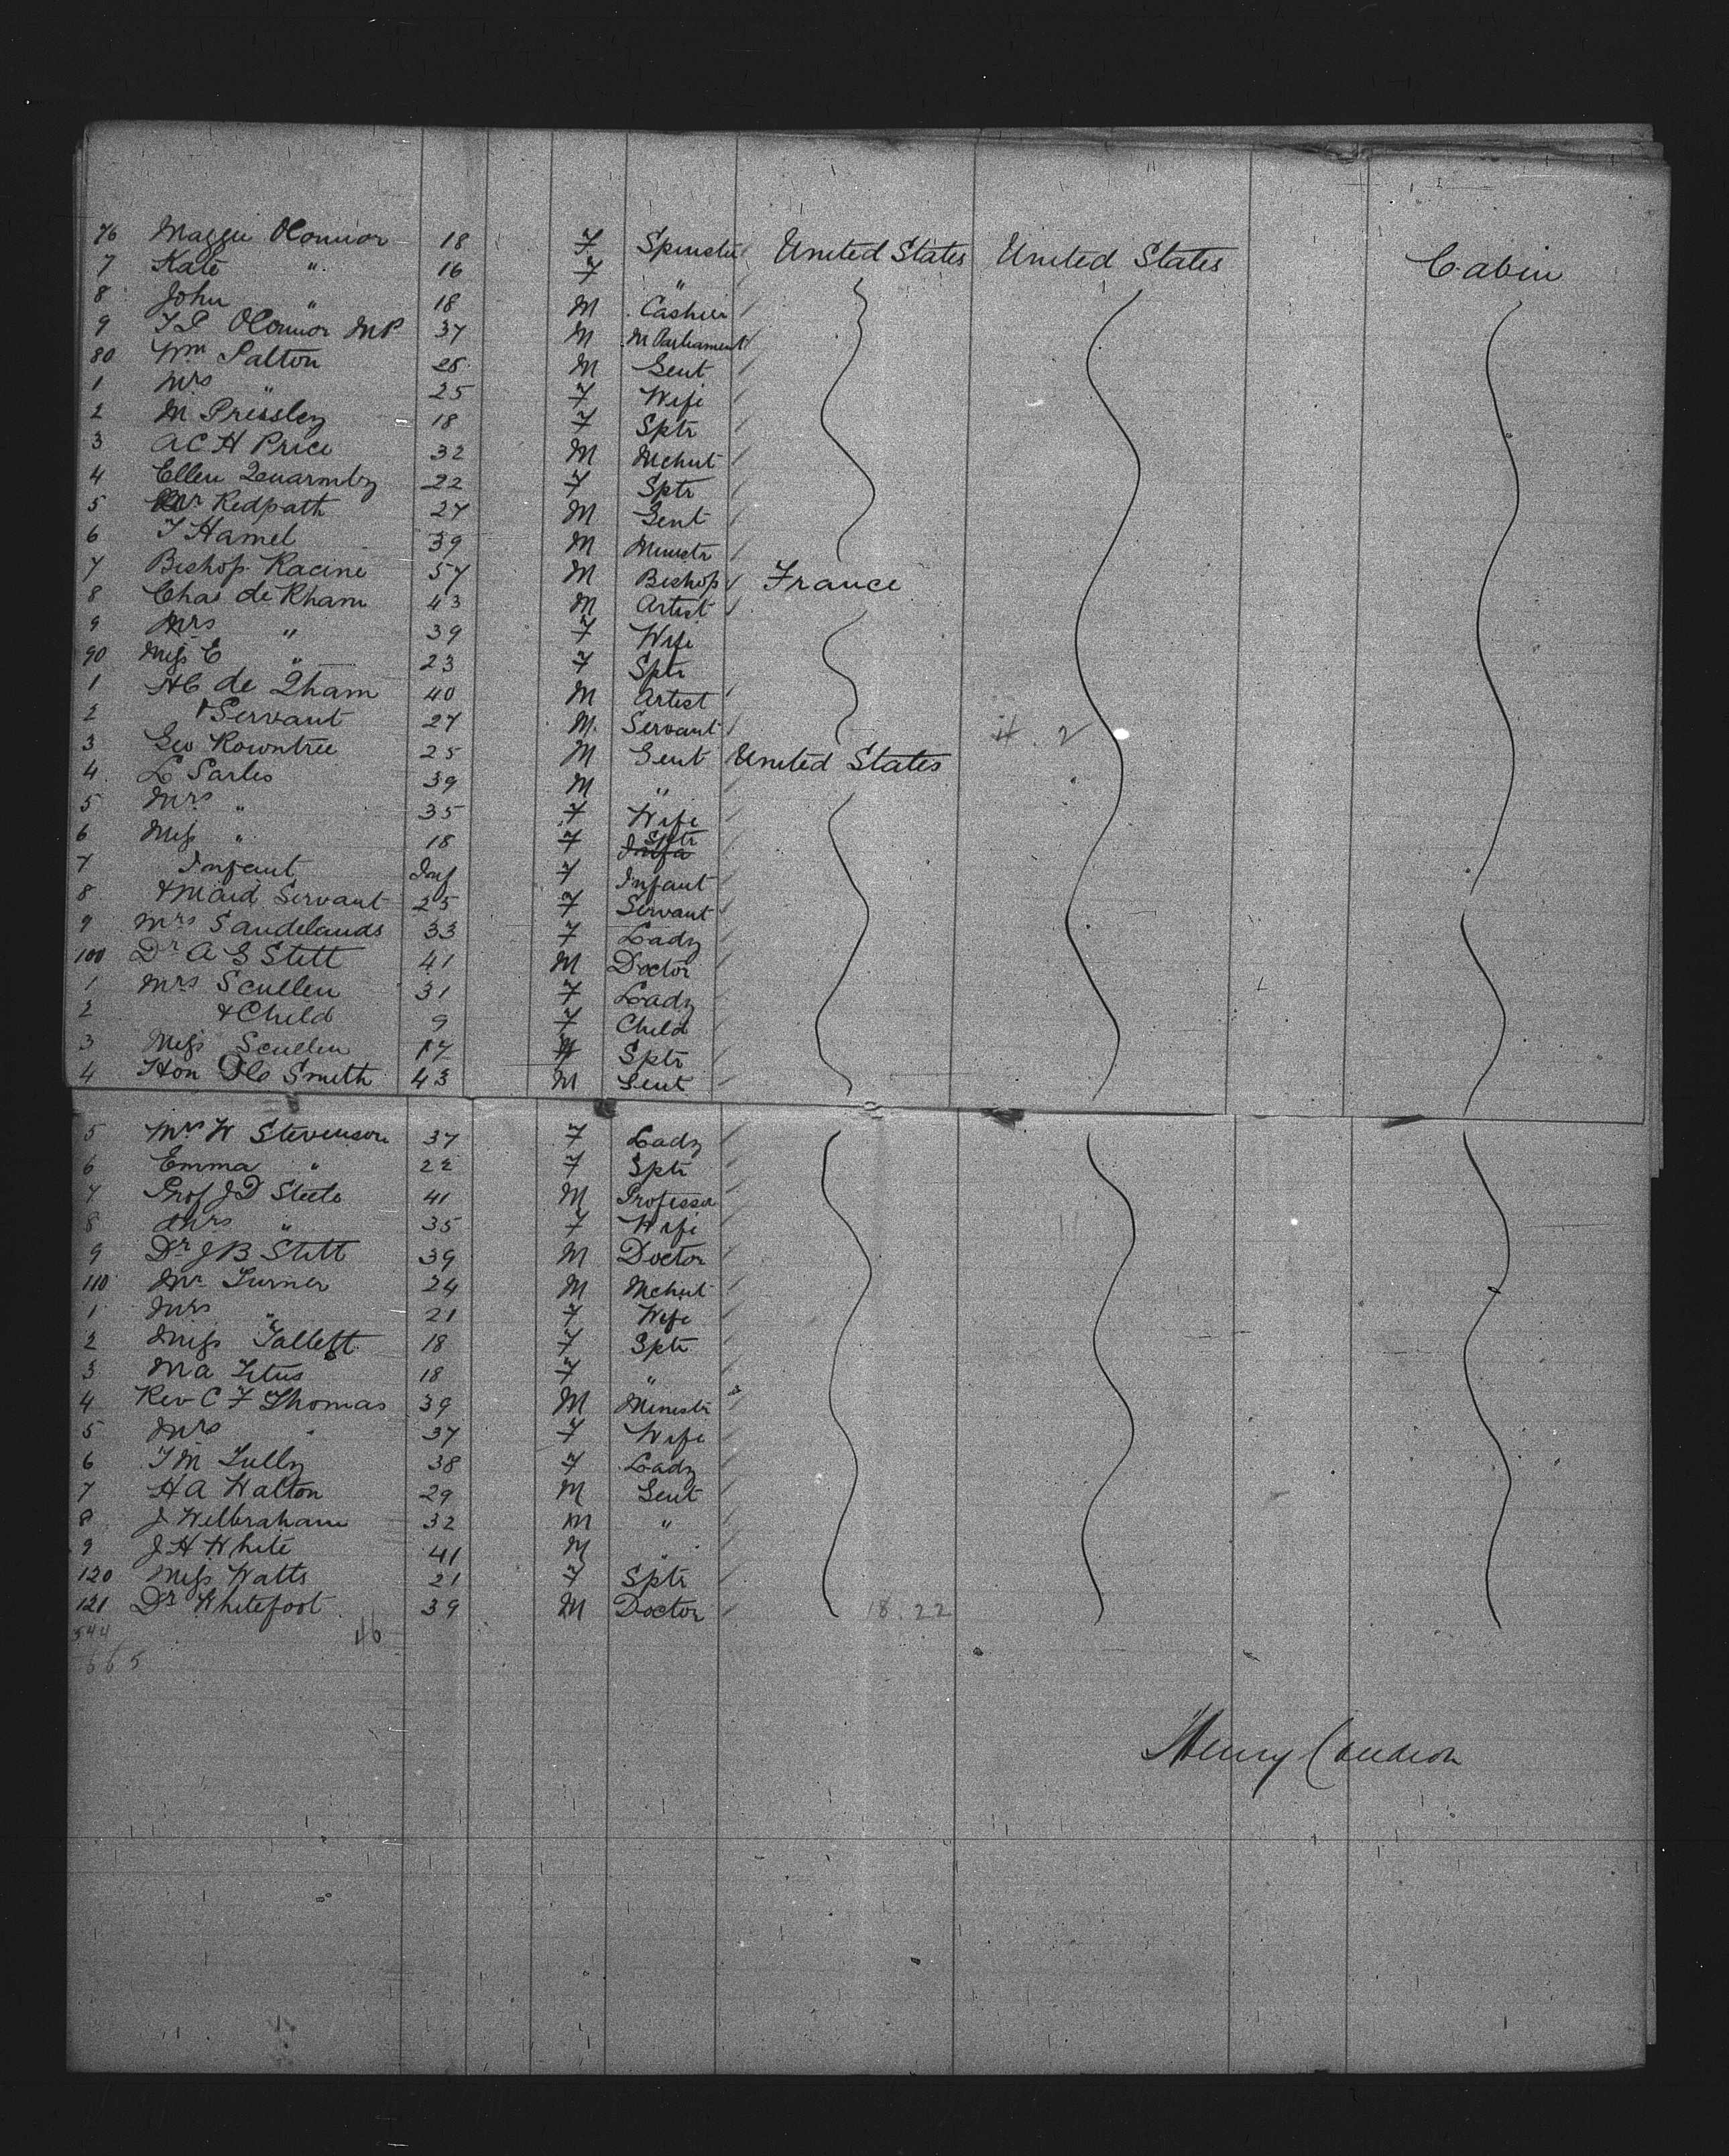 76 Maggie OConnor 18 F Spinster United States United States Cabin
7 Kate " 16 F "
8 John " 18 M Cashier
9 T P OConnor MP 37 M M Parliament
80 Wm Palton 28 M Gent
1 Mrs " 25 F Wife
2 M Pressley 18 F Sptr
3 A C H Price 32 M Mchnt
4 Ellen Quarmby 22 F Sptr
5 Mr Redpath 27 M Gent
6 T Hamel 39 M Ministr
7 Bishop Racine 57 M Bishop France
8 Chas de Rham 43 M Artist
9 Mrs " 39 F Wife
90 Miss E " 23 F Sptr
1 H C de Rham 40 M Artist
2 & Servant 27 M Servant
3 Geo Rowntree 25 M Gent United States
4 L Sarles 39 M "
5 Mrs " 35 F Wife
6 Miss " 18 F Sptr
7 Infant Inf F Infant
8 & Maid Servant 25 F Servant
9 Mrs Sandelands 33 F Lady
100 Dr A G Stett 41 M Doctor
1 Mrs Scullen 31 F Lady
2 & Child 9 F Child
3 Miss Scullen 17 F Sptr
4 Hon Smith 43 M Gent
5 Mrs W Stevenson 37 F Lady
6 Emma " 22 F Sptr
7 Prof J D Steele 41 M Professor
8 Mrs " 35 F Wife
9 Dr J B Stett 39 M Doctor
110 Mr Turner 24 M Mchnt
1 Mrs " 21 F Wife
2 Miss 18 F Sptr
3 M A Titus 18 F "
4 Rev C F Thomas 39 M Ministr
5 Mrs " 37 F Wife
6 T M Tully 38 F Lady
7 H A Walton 29 M Gent
8 J Wilbraham 32 M "
9 J H White 41 M "
120 Miss Watts 21 F Sptr
121 Dr Whitefoot 39 M Doctor 18.22
544
665
Henry